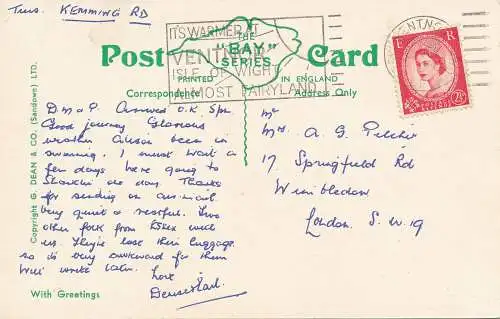 Tues. KEMMING RD
IT'S WARMER AT
VENTNOR
ISLE OF WIGHT
ALMOST FAIRYLAND
VENTNOR
Post Card
THE
"BAY"
SERIES
PRINTED IN ENGLAND
Correspondence Address Only
E R
POSTAGE REVENUE
2½D
D M & P. Arrived O.K. 5pm
Good journey Glorious
weather Alison been in
swimming. I must wait a
few days here going to
Shanklin one day. Thanks
for sending on air-mail.
Very quiet & restful. Two
other folk from Essex with
us. They've lost their luggage
so is very awkward for them
Will write later. Love
Mr
Mrs. A. G. Pilcher
17 Springfield Rd
Wimbledon
London. S.W.19
Copyright G. DEAN & CO. (Sandown) LTD.
With Greetings